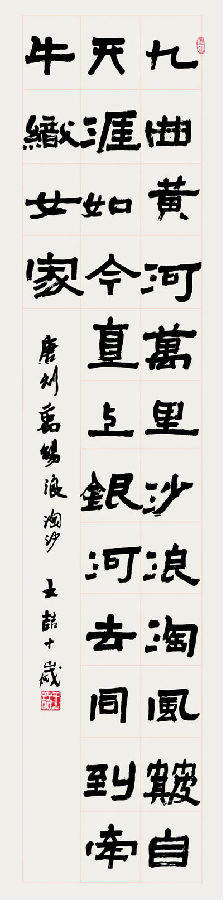 九曲黄河萬里沙浪淘風簸自
天涯如今直上銀河去同到牽
牛織女家
唐刘禹錫浪淘沙 大喆十歲